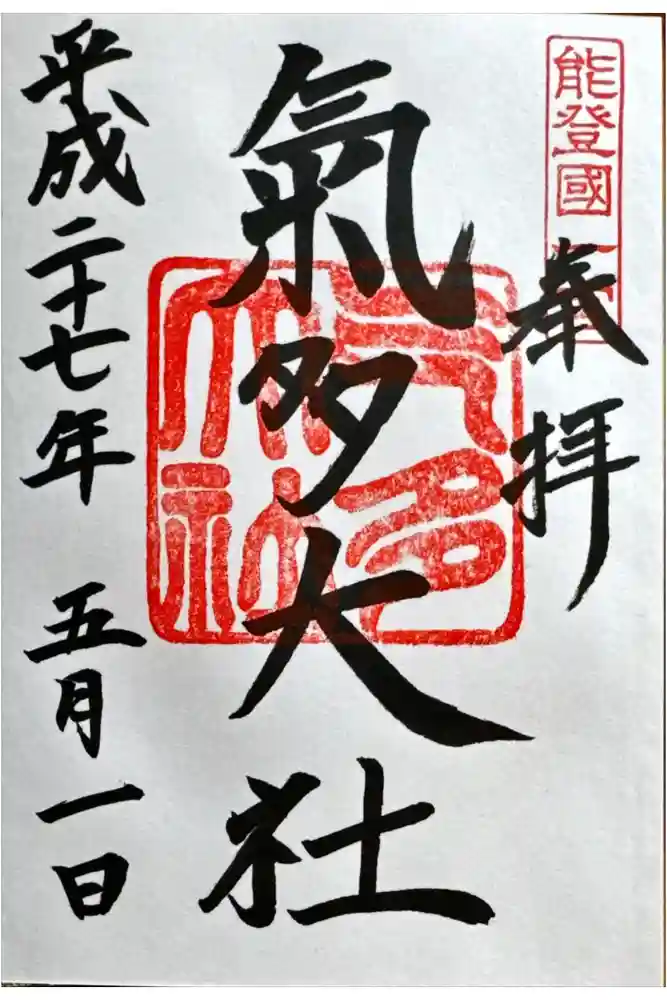 能登國一宮
奉拝
氣多大社
平成二十七年 五月一日
氣多大社